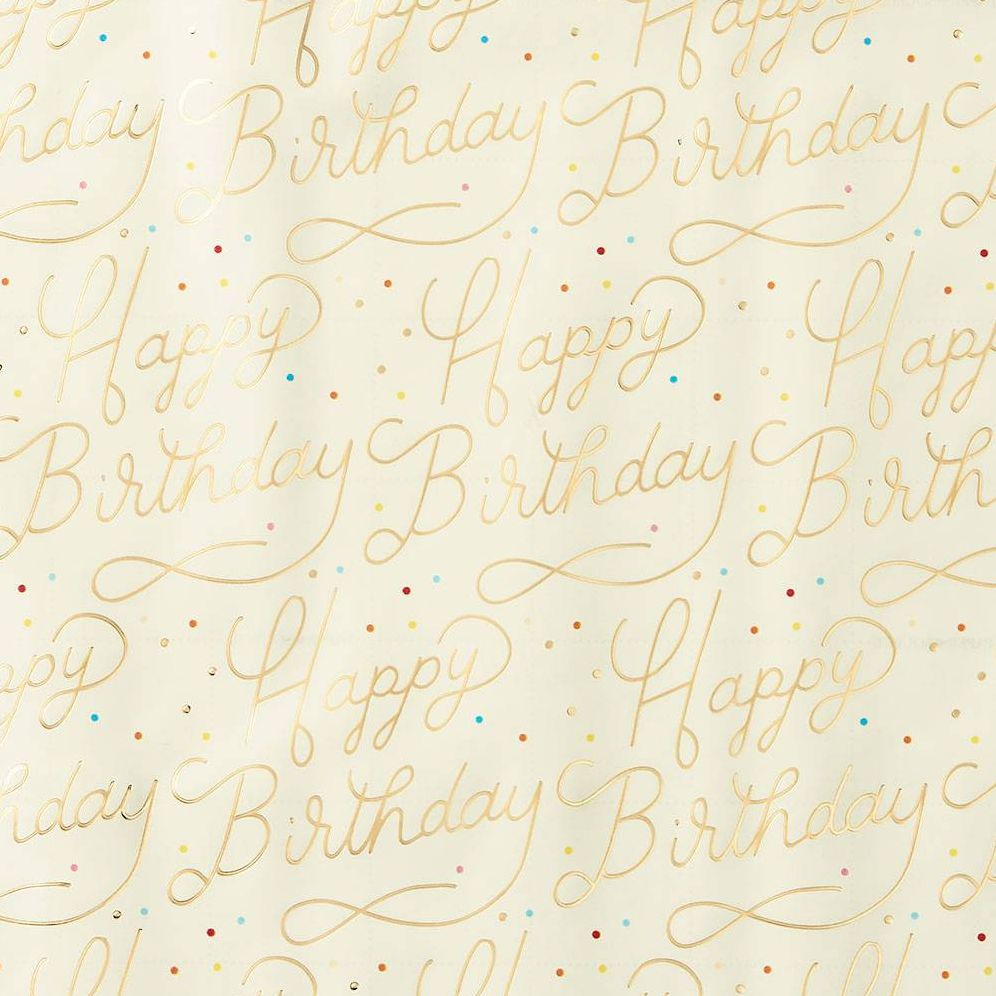 Happy Happy Happy
Birthday Birthday Birthday
Happy Happy Happy
Birthday Birthday Birth
Happy Happy Happy
Birthday Birthday Birthday